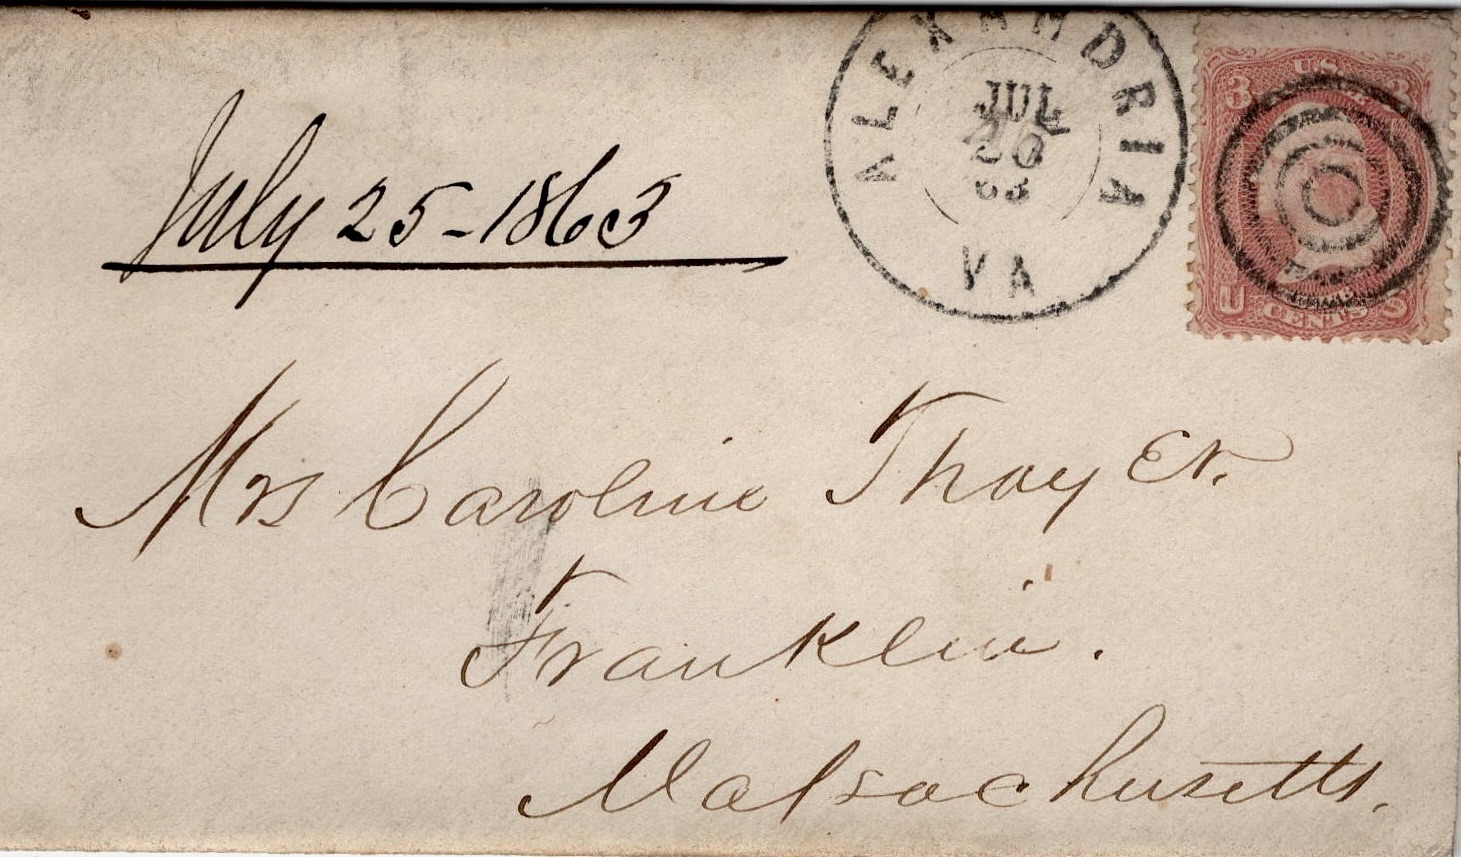 ALEXANDRIA
JUL
63
VA
U.S.
3 3
U CENTS S
July 25-1863
Mrs Caroline Thayer.
Franklin.
Massachusetts.